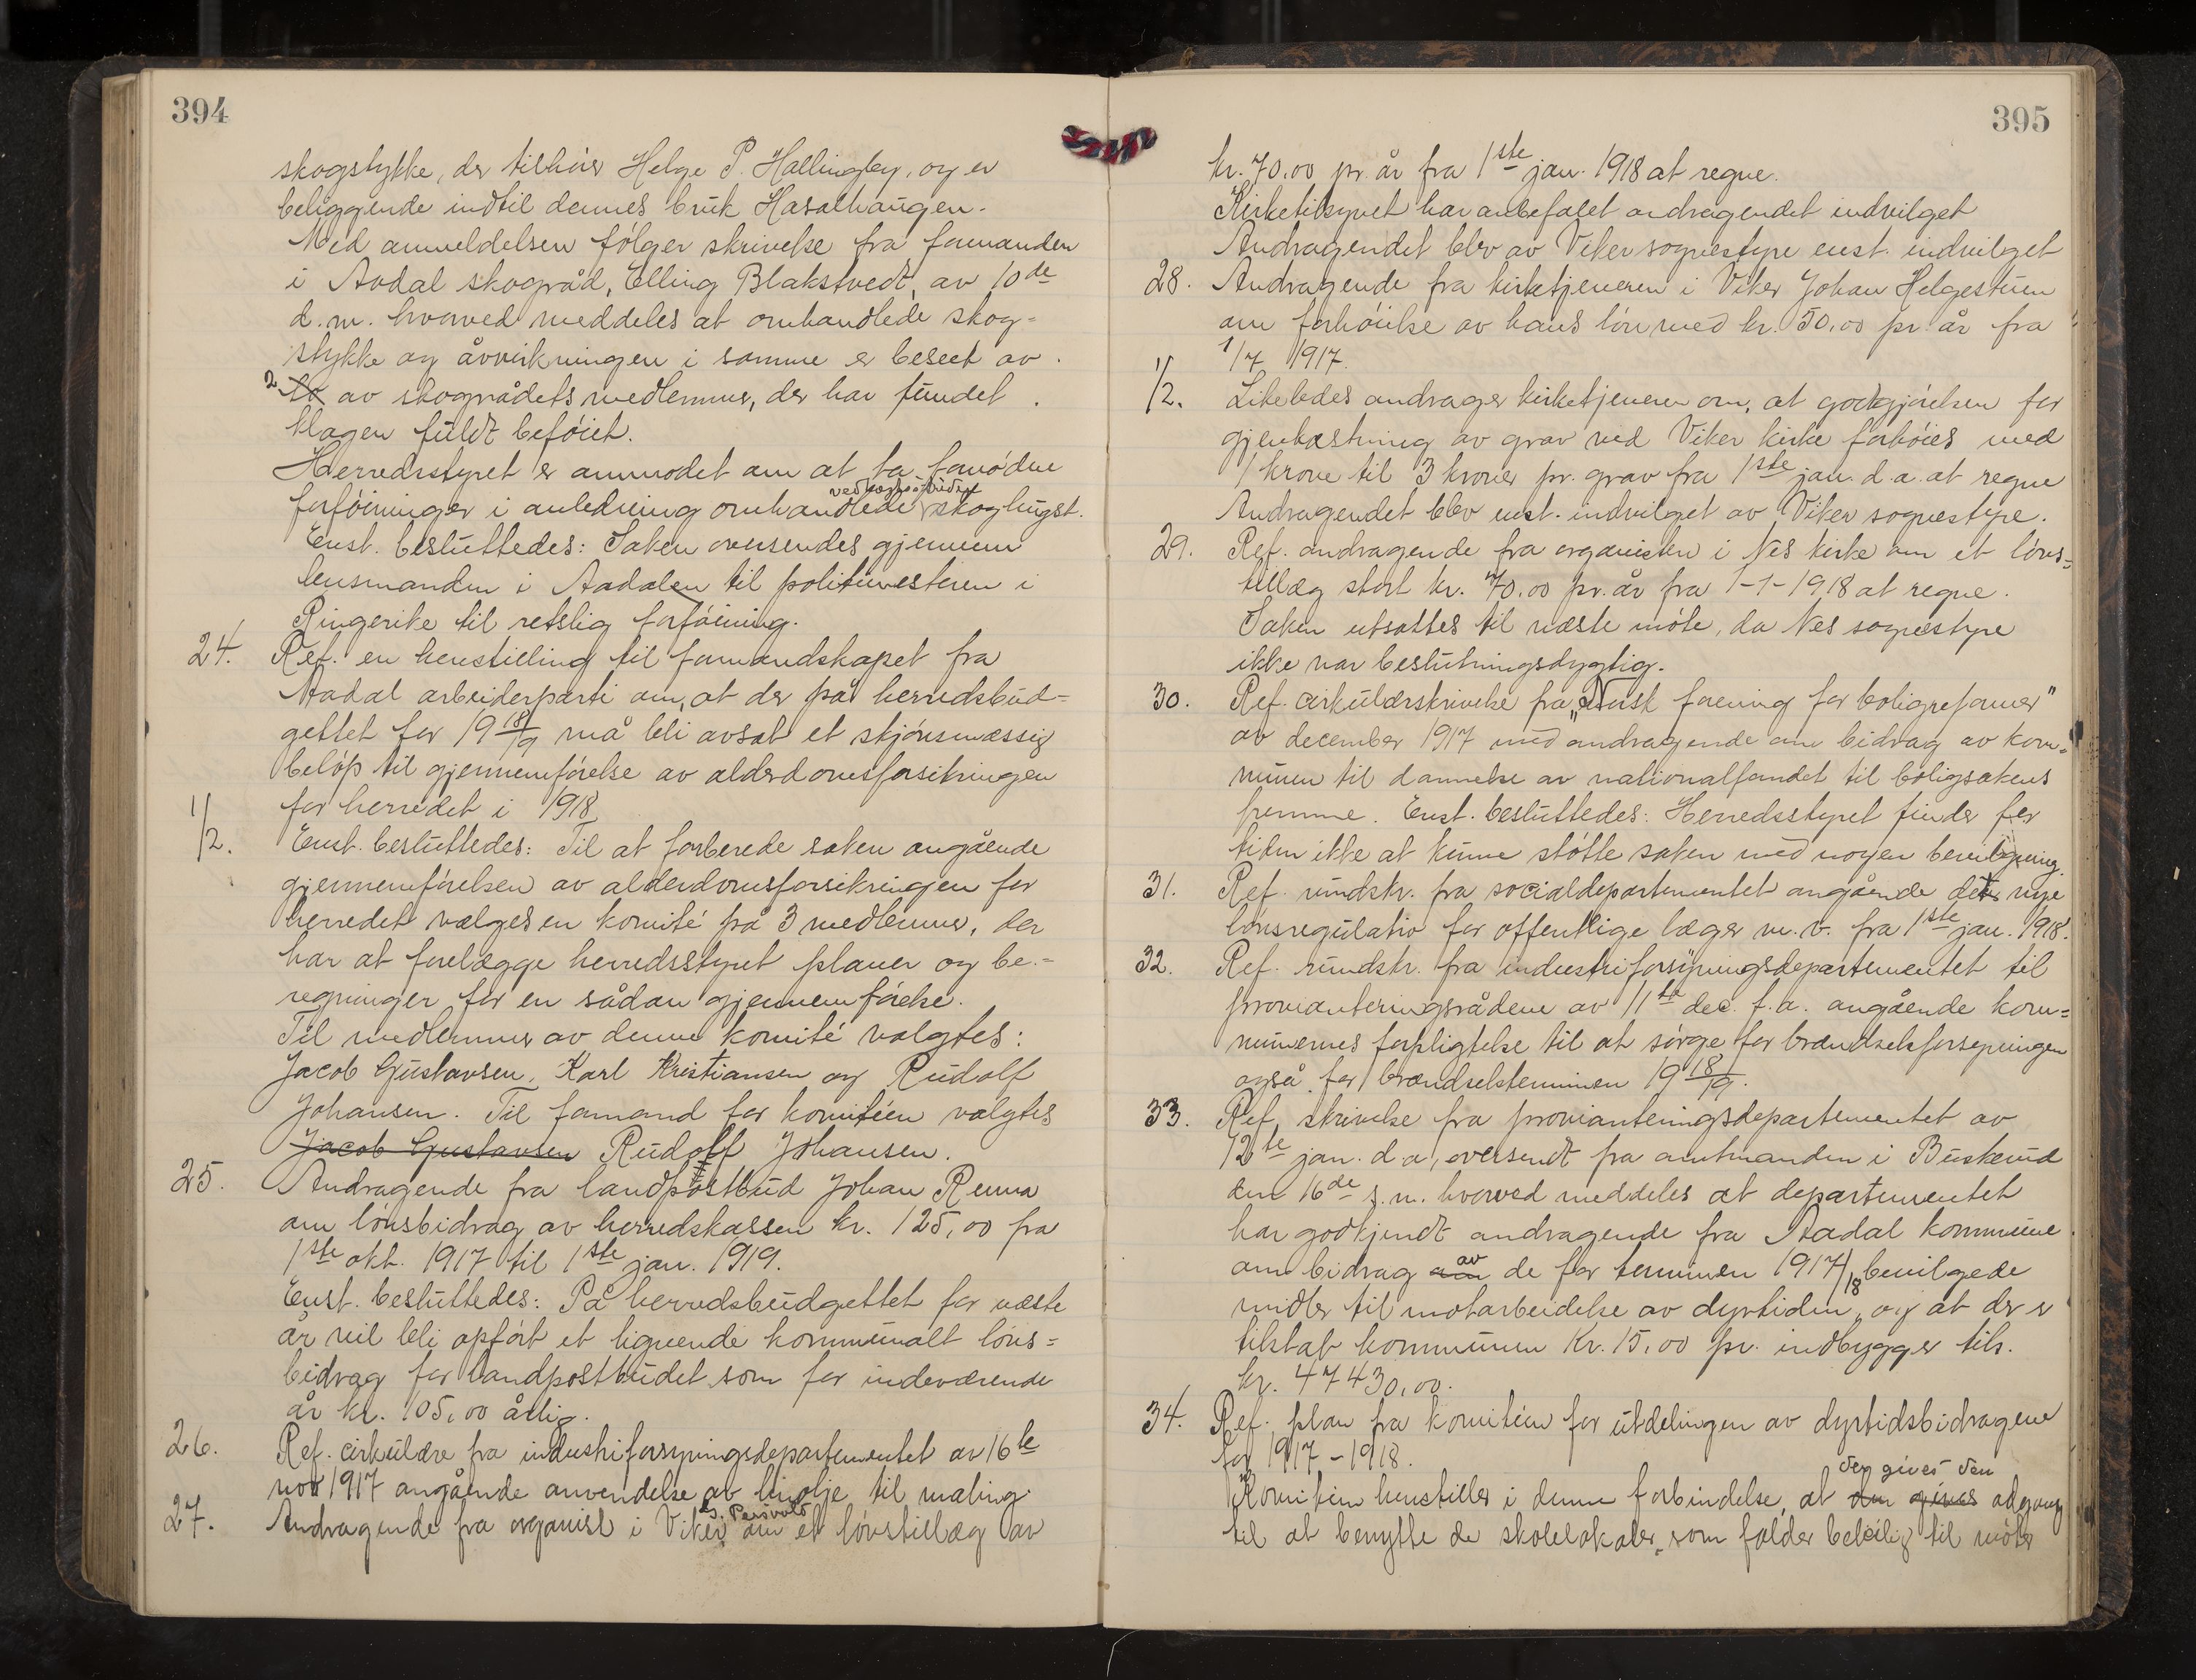 394
skogstykke, der tilhöir Helge P. Hallingby, og er
beliggende indtil dennes bruk Hasalhaugen.
Med anmeldelsen følger skrivelse fra formanden
i Aadal skogråd, Elling Blakstvedt, av 10de
d.m. hvorved meddeles at omhandlede skog=
stykke og åvvirkningen i samme er beseet av
2 to av skogrådets medlemmer, der har fundet
klagen fuldt beföiet.
Herredsstyret er anmodet om at ta fornødne
forföininger i anledning omhandlede skoghugst.
Enst. besluttedes: Saken oversendes gjennem
lensmanden i Aadalen til politimesteren i
Ringerike til retslig forföining.
24. Ref. en henstilling til formandskapet fra
Aadal arbeiderparti om, at der på herredsbud=
gettet for 19 18/19 må bli avsat et skjönsmæssig
belöp til gjennemförelse av alderdomsforsikringen
for herredet i 1918
1/2. Enst. besluttedes: Til at forberede saken angående
gjennemförelsen av alderdomsforsikringen for
herredet vælges en komité på 3 medlemmer, der
har at forelægge herredsstyret planer og be=
regninger for en sådan gjennemförelse.
Til medlemmer av denne komité valgtes:
Jacob Gustavsen, Karl Kristiansen og Rudolf
Johansen. Til formand for komitéen valgtes
Jacob Gustavsen Rudolf Johansen.
25. Andragende fra landpostbud Johan Renna
om lönsbidrag av herredskassen kr. 125,00 fra
1ste okt. 1917 til 1ste jan. 1919.
Enst. besluttedes: På herredsbudgettet for næste
år vil bli opfört et lignende kommunalt löns=
bidrag for landpostbudet som for indeværende
år kr. 105,00 årlig.
26. Ref. cirkulære fra industriforsyningsdepartementet av 16de
nov 1917 angående anvendelse av linolje til maling.
27. Andragende fra organist i Viker om et lönstillæg av
395
kr. 70,00 pr. år fra 1ste jan. 1918 at regne.
Kirketilsynet har anbefalet andragendet indvilget
Andragendet blev av Viker sognestyre enst. indvilget
28. Andragende fra kirketjeneren i Viker Johan Helgestuen
om forhöielse av hans lön med kr. 50,00 pr. år fra
1/7 1917.
1/2. Likeledes andrager kirketjeneren om, at godtgjörelsen for
gjenkastning av grav ved Viker kirke forhöies med
1 krone til 3 kroner pr. grav fra 1ste jan. d.a. at regne
Andragendet blev enst. indvilget av Viker sognestyre.
29. Ref. andragende fra organisten i Nes kirke om et löns=
tillæg stort kr. 70,00 pr. år fra 1-1-1918 at regne.
Saken utsattes til næste möte, da Nes sognestyre
ikke var beslutningsdygtig.
30. Ref. cirkulærskrivelse fra „Norsk forening for boligreformer"
av december 1917 med andragende om bidrag av kom=
munen til dannelse av nationalfondet til boligsakens
fremme. Enst. besluttedes: Herredsstyret finder for
tiden ikke at kunne stötte saken med nogen bevilgning.
31. Ref. rundskr. fra socialdepartementet angående det nye
lönsregulativ for offentlige læger m.v. fra 1ste jan. 1918.
32. Ref. rundskr. fra industriforsyningsdepartementet til
provianteringsrådene av 11te dec. f.a. angående kom=
munernes forpligtelse til at sörge for brændselsforsyningen
også for brændselsterminen 19 18/19.
33. Ref. skrivelse fra provianteringsdepartementet av
12te jan. d.a, oversendt fra amtmanden i Buskerud
den 16de s.m. hvorved meddeles at departementet
har godkjendt andragende fra Aadal kommune
om bidrag om av de for terminen 1917/18 bevilgede
midler til motarbeidelse av dyrtiden, og at der er
tilstat kommunen Kr. 15,00 pr. indbygger tils.
kr. 47430,00.
34. Ref. plan fra komitéen for utdelingen av dyrtidsbidragene
for 1917-1918.
Komitéen henstiller i denne forbindelse, at den gives der gives den adgang
til at benytte de skolelokaler, som falder beleilig til möter